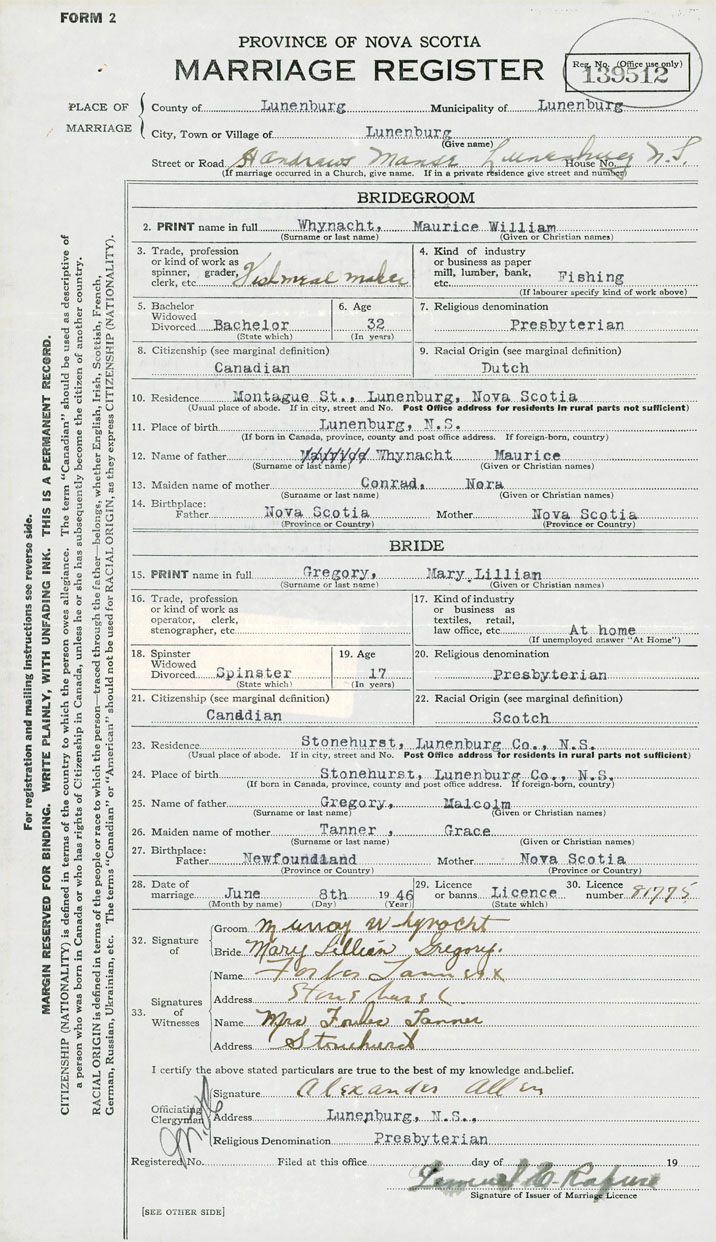 FORM 2
PROVINCE OF NOVA SCOTIA
MARRIAGE REGISTER
Reg. No. (Office use only)
139512
PLACE OF MARRIAGE
County of Lunenburg Municipality of Lunenburg
City, Town or Village of Lunenburg
(Give name)
Street or Road St Andrews Manse Lunenburg N.S. House No.
(If marriage occurred in a Church, give name. If in a private residence give street and number)
BRIDEGROOM
2. PRINT name in full Whynacht, Maurice William
(Surname or last name) (Given or Christian names)
3. Trade, profession or kind of work as spinner, grader, clerk, etc. Fishmeal maker
4. Kind of industry or business as paper mill, lumber, bank, etc. Fishing
(If labourer specify kind of work above)
5. Bachelor Widowed Divorced Bachelor
(State which)
6. Age 32
(In years)
7. Religious denomination
Presbyterian
8. Citizenship (see marginal definition)
Canadian
9. Racial Origin (see marginal definition)
Dutch
10. Residence Montague St., Lunenburg, Nova Scotia
(Usual place of abode. If in city, street and No. Post Office address for residents in rural parts not sufficient)
11. Place of birth Lunenburg, N.S.
(If born in Canada, province, county and post office address. If foreign-born, country)
12. Name of father Whynacht Maurice
(Surname or last name) (Given or Christian names)
13. Maiden name of mother Conrad, Nora
(Surname or last name) (Given or Christian names)
14. Birthplace: Father Nova Scotia Mother Nova Scotia
(Province or Country) (Province or Country)
BRIDE
15. PRINT name in full Gregory, Mary Lillian
(Surname or last name) (Given or Christian names)
16. Trade, profession or kind of work as operator, clerk, stenographer, etc.
17. Kind of industry or business as textiles, retail, law office, etc. At home
(If unemployed answer "At Home")
18. Spinster Widowed Divorced Spinster
(State which)
19. Age 17
(In years)
20. Religious denomination
Presbyterian
21. Citizenship (see marginal definition)
Canadian
22. Racial Origin (see marginal definition)
Scotch
23. Residence Stonehurst, Lunenburg Co., N.S.
(Usual place of abode. If in city, street and No. Post Office address for residents in rural parts not sufficient)
24. Place of birth Stonehurst, Lunenburg Co., N.S.
(If born in Canada, province, county and post office address. If foreign-born, country)
25. Name of father Gregory, Malcolm
(Surname or last name) (Given or Christian names)
26. Maiden name of mother Tanner, Grace
(Surname or last name) (Given or Christian names)
27. Birthplace: Father Newfoundland Mother Nova Scotia
(Province or Country) (Province or Country)
28. Date of marriage June 8th 1946
(Month by name) (Day) (Year)
29. Licence or banns Licence
(State which)
30. Licence number 81775
32. Signature of
Groom Murray Whynacht
Bride Mary Lillian Gregory.
33. Signatures of Witnesses
Name Forbes Tanner
Address Stonehurst
Name Mrs Forbes Tanner
Address Stonehurst
I certify the above stated particulars are true to the best of my knowledge and belief.
Officiating Clergyman
Signature Alexander Allen
Address Lunenburg, N.S.,
Religious Denomination Presbyterian
Registered No. Filed at this office day of 19
Signature of Issuer of Marriage Licence
[SEE OTHER SIDE]
For registration and mailing instructions see reverse side.
MARGIN RESERVED FOR BINDING. WRITE PLAINLY, WITH UNFADING INK. THIS IS A PERMANENT RECORD.
CITIZENSHIP (NATIONALITY) is defined in terms of the country to which the person owes allegiance. The term "Canadian" should be used as descriptive of
a person who was born in Canada or who has rights of Citizenship in Canada, unless he or she has subsequently become the citizen of another country.
RACIAL ORIGIN is defined in terms of the people or race to which the person—traced through the father—belongs, whether English, Irish, Scottish, French,
German, Russian, Ukrainian, etc. The terms "Canadian" or "American" should not be used for RACIAL ORIGIN, as they express CITIZENSHIP (NATIONALITY).